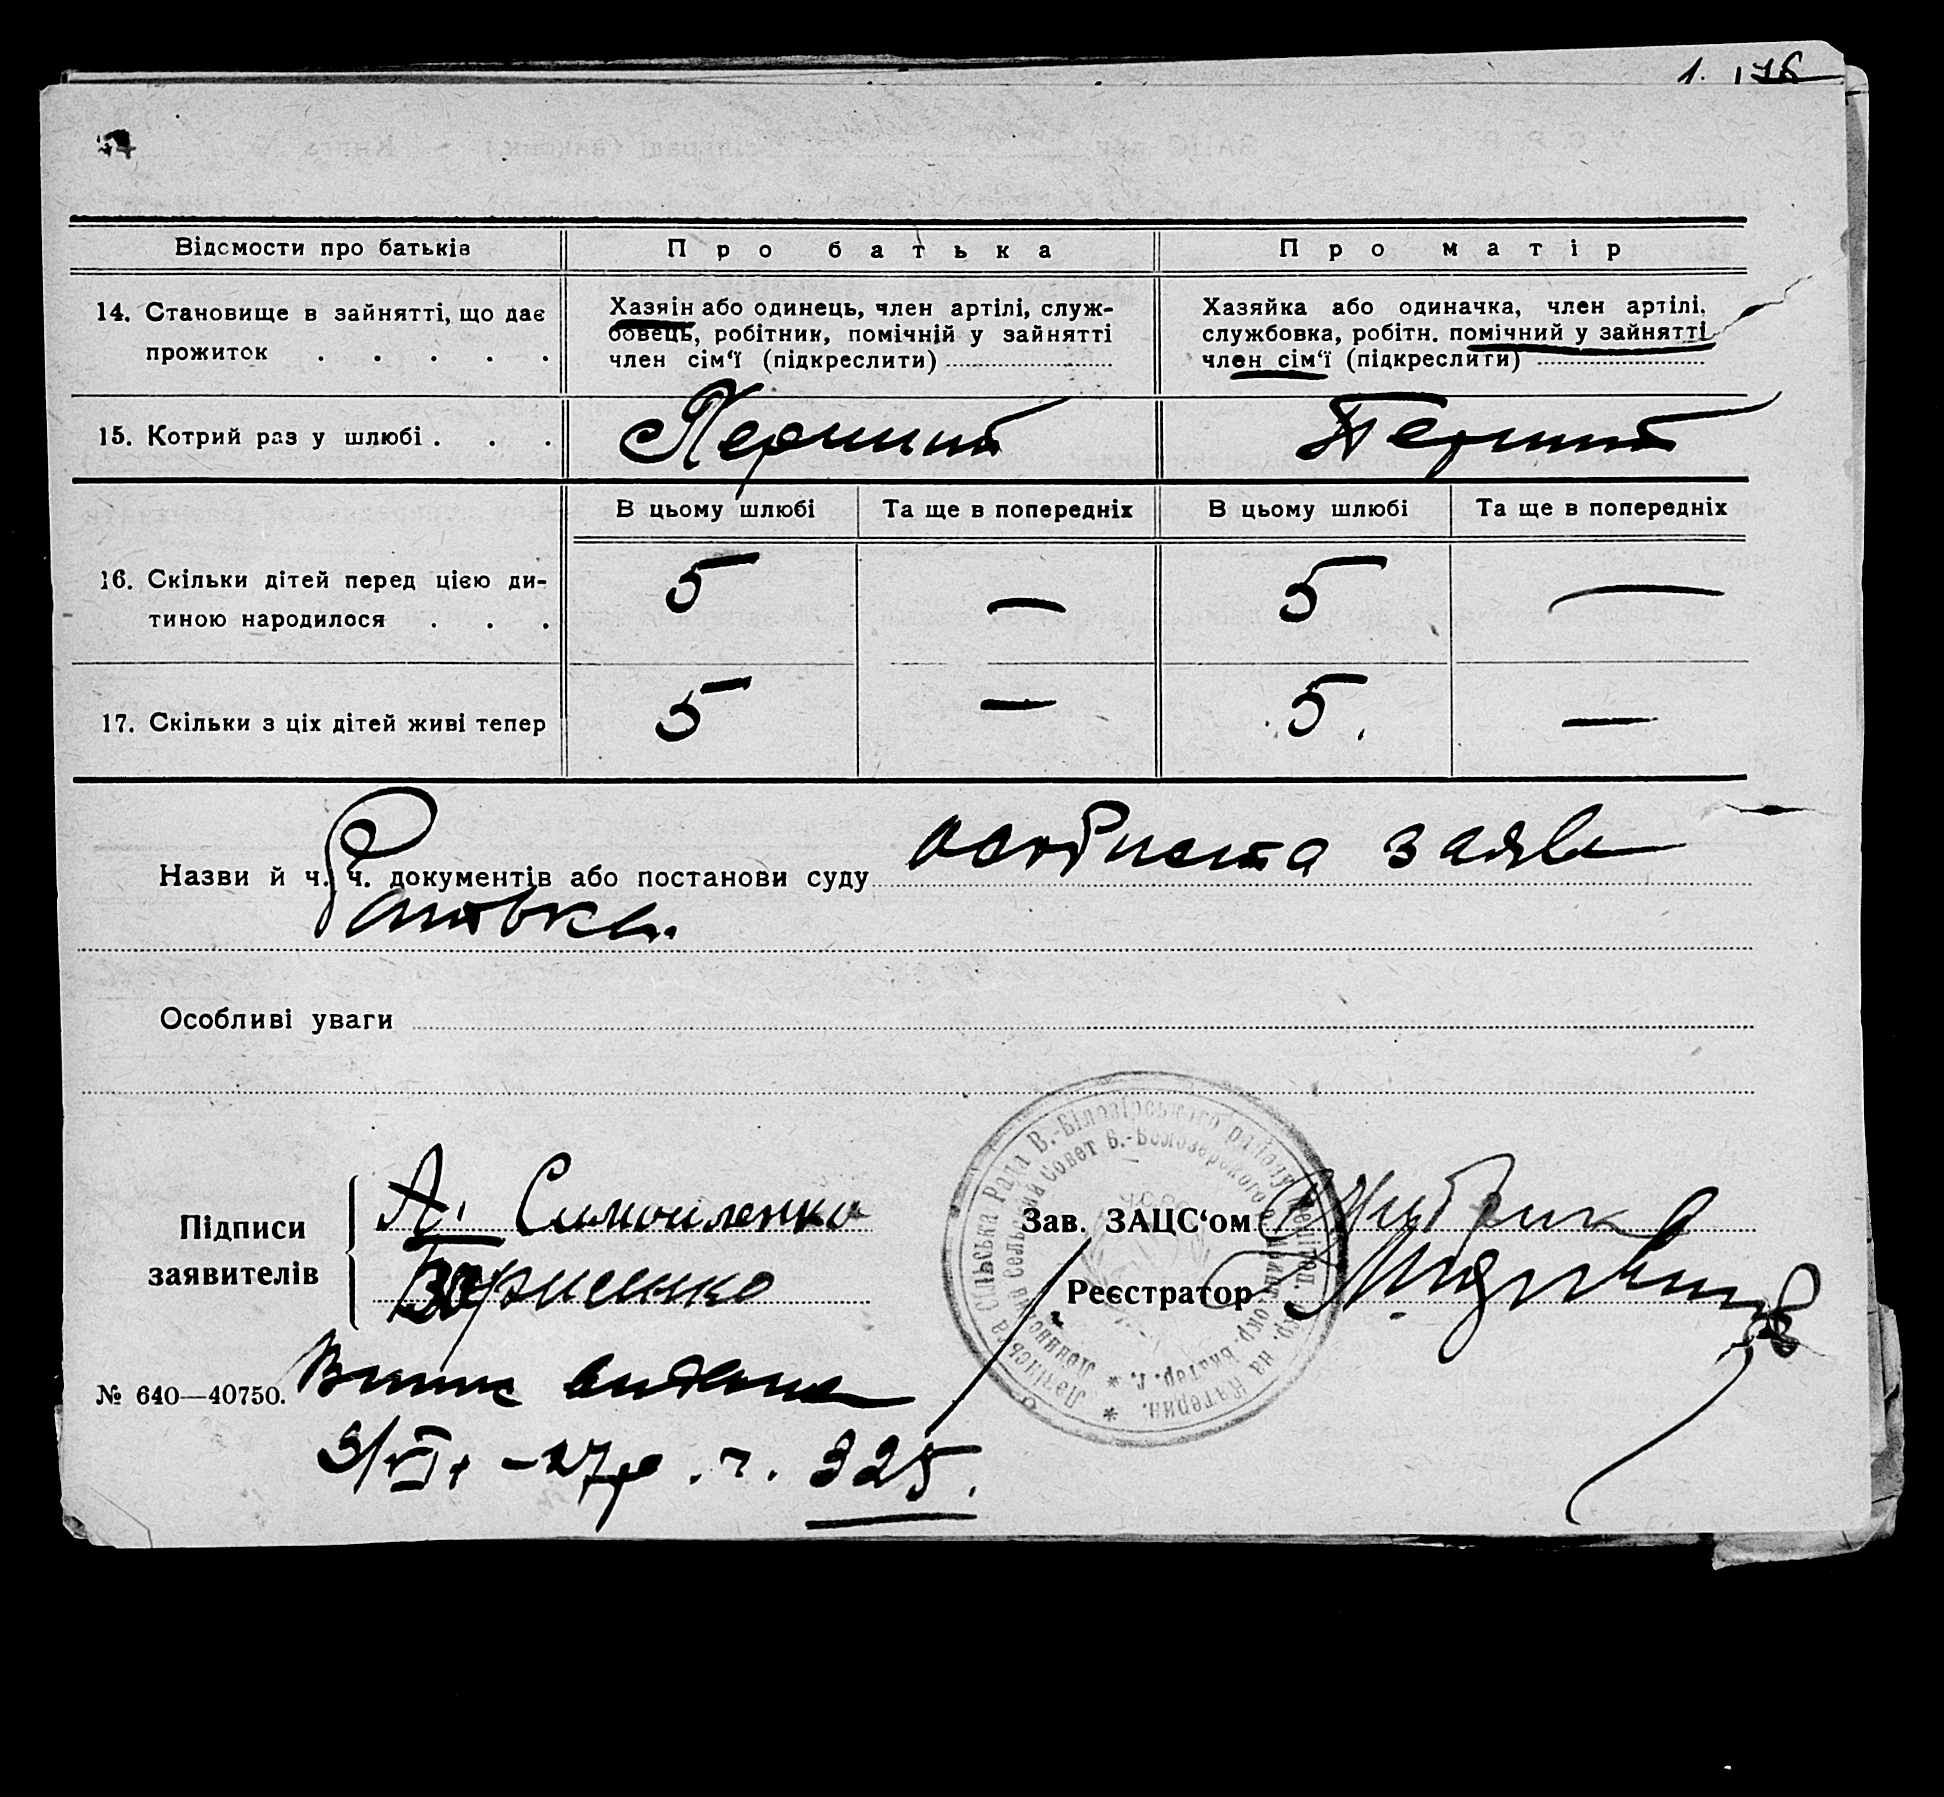 1. 176
Відомости про батьків
Про батька
Про матір
14. Становище в зайнятті, що дає
прожиток . . . . .
Хазяїн або одинець, член артілі, служ-
бовець, робітник, помічній у зайнятті
член сім'ї (підкреслити)
Хазяйка або одиначка, член артілі,
службовка, робітн. помічний у зайнятті
член сім'ї (підкреслити)
15. Котрий раз у шлюбі . . .
Перший
Перший
В цьому шлюбі
Та ще в попередніх
В цьому шлюбі
Та ще в попередніх
16. Скільки дітей перед цією ди-
тиною народилося . . .
5 — 5 —
17. Скільки з ціх дітей живі тепер
5 — 5. —
Назви й ч. ч. документів або постанови суду особиста заява
батька.
Особливі уваги
Підписи
заявителів
А. Самойленко
Зав. ЗАЦС'ом
Реєстратор
Ленінська Сільська Рада В.-Білозірського району Мелітоп. окр. на Катерин.
Ленинский Сельский Совет В.-Белозерского р. Мелит. окр. Екатер. г.
№ 640—40750.
Витяг видано
3/VI -27р. ч. 325.